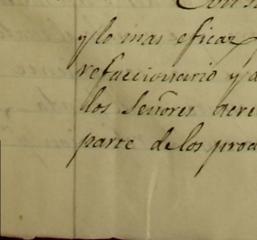 y lo mas eficaz
refaccionario y a
los Señores acre
parte de los prod